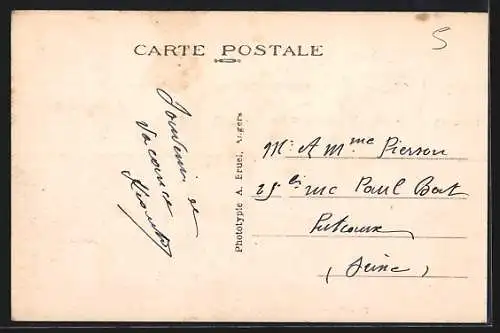 CARTE POSTALE
5
Souvenir de
Vacances
Phototypie A. Bruel, Angers
Mr A Mme Pierson
25 bis rue Paul Bert
Puteaux
(Seine)